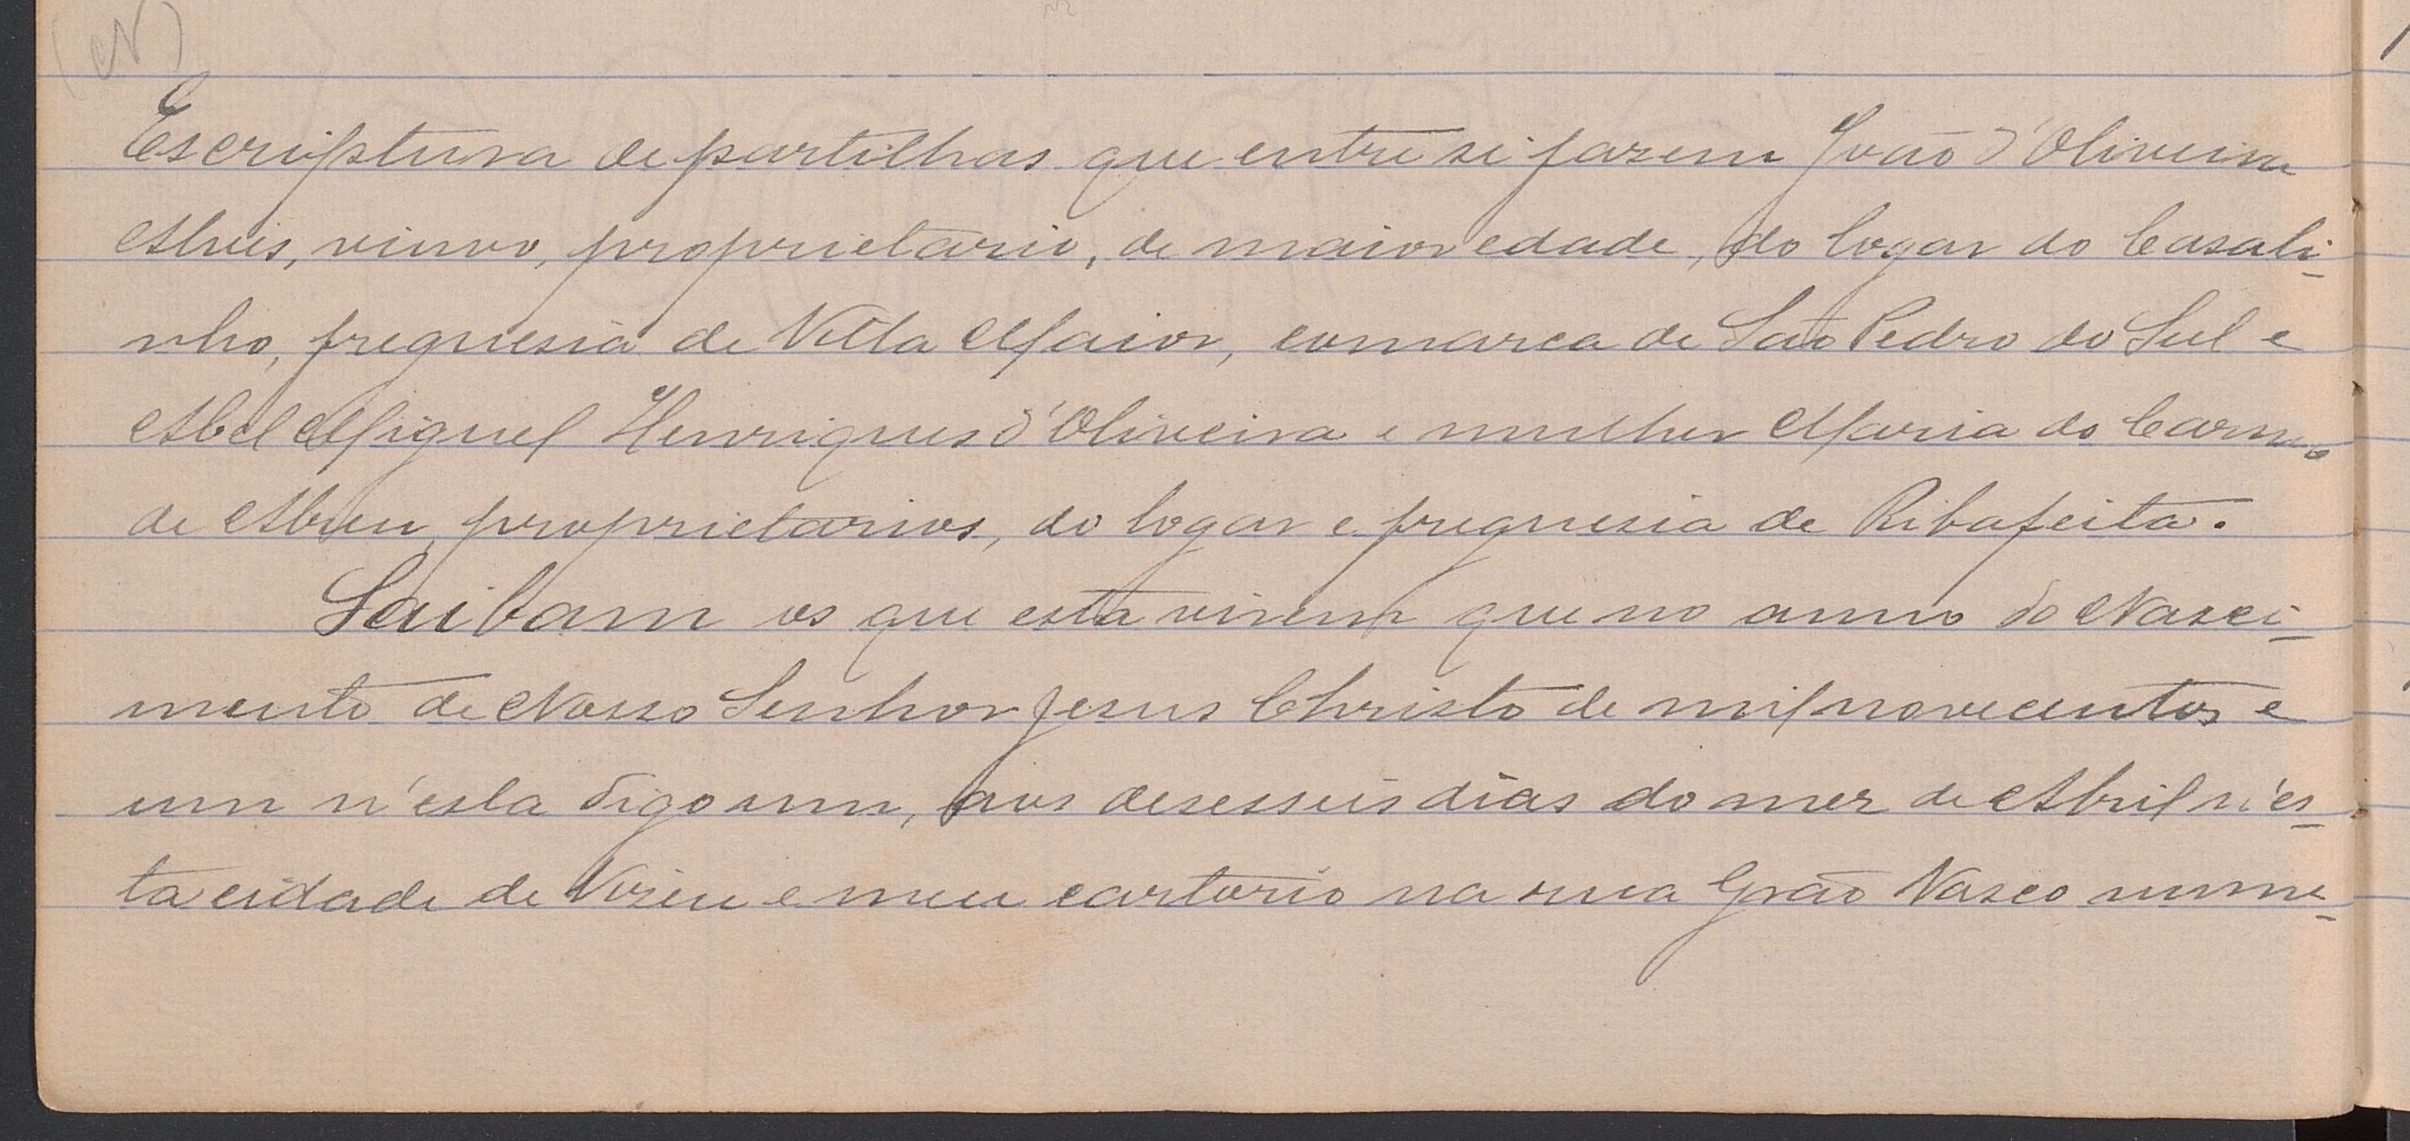 (N)
Escriptura de partilhas que entre si fazem João d'Oliveira
Alves, viuvo, proprietario, de maior edade, do logar do Casali-
nho, freguesia de Villa Maior, comarca de São Pedro do Sul e
Abel Miguel Henriques d'Oliveira e mulher Maria do Carmo
de Abreu, proprietarios, do logar e freguesia de Ribafeita.
Saibam os que esta virem que no anno do Nasci-
mento de Nosso Senhor Jesus Christo de mil novecentos e
um n'esta digo um, aos deseseis dias do mez de Abril n'es-
ta cidade de Vizeu e meu cartorio na rua Grão Vasco nume-